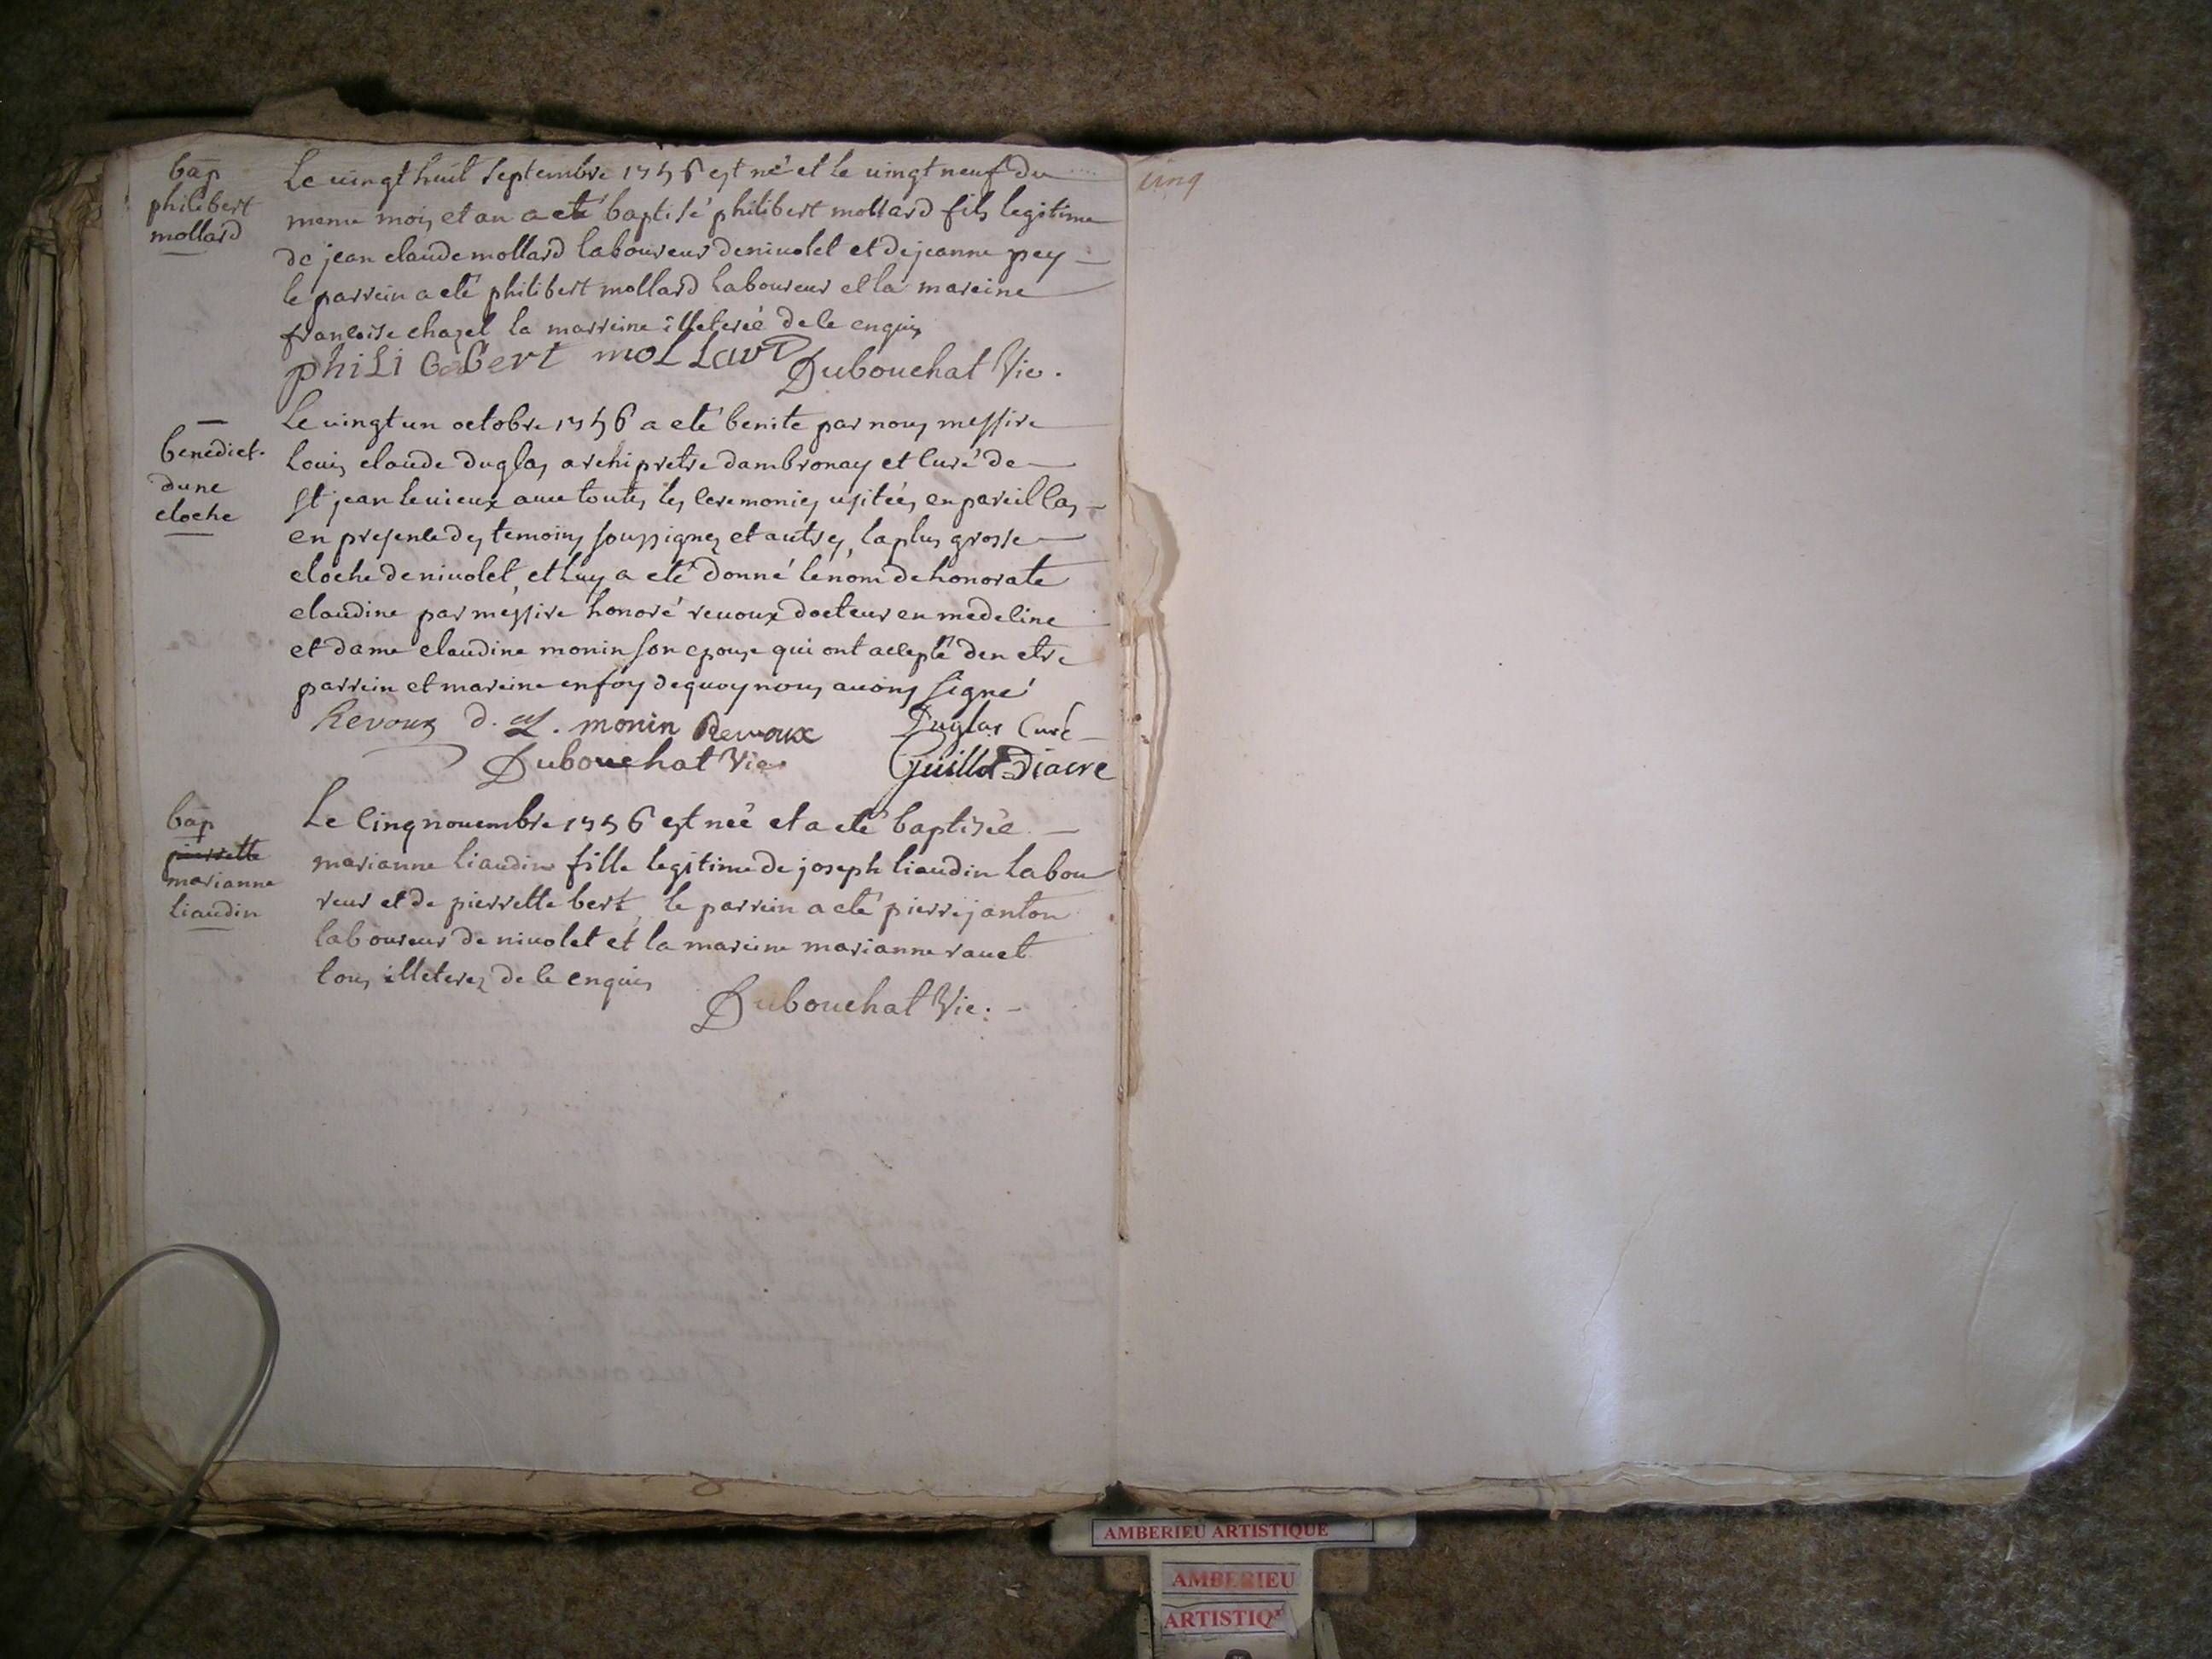 bap
philibert
mollard
Le vingt huit septembre 1756 est né et le vingt neuf du
meme mois et an a eté baptisé philibert mollard fils legitime
de jean claude mollard laboureur de nivolet et de jeanne pey
le parrein a eté philibert mollard laboureur et la mareine
francoise chazel la marreine illeterée de ce enquis
phili bert mollard Dubouchat Vic.
benedict.
dune
cloche
Le vingt un octobre 1756 a eté benite par nous messire
Louis claude duglas archipretre dambronay et curé de
st jean le vieux avec toutes les ceremonies usitées en pareil cas
en presence des temoins soussignez et autres, la plus grosse
cloche de nivolet, et luy a eté donné le nom de honorate
claudine par messire honoré revoux docteur en medecine
et dame claudine monin son epouse qui ont accepté den etre
parrein et mareine en foy de quoy nous avons signé
Revoux d. m. monin Revoux Duglas Curé
Dubouchat Vic. Guillot Diacre
bap
pierrette
marianne
liaudin
Le cinq novembre 1756 est née et a eté baptisée
marianne liaudin fille legitime de joseph liaudin labou
reur et de pierrette bert, le parrein a eté pierre janton
laboureur de nivolet et la mareine marianne ravet
tous illeterez de ce enquis
Dubouchat Vic.
cinq
AMBERIEU ARTISTIQUE
AMBERIEU
ARTISTIQ